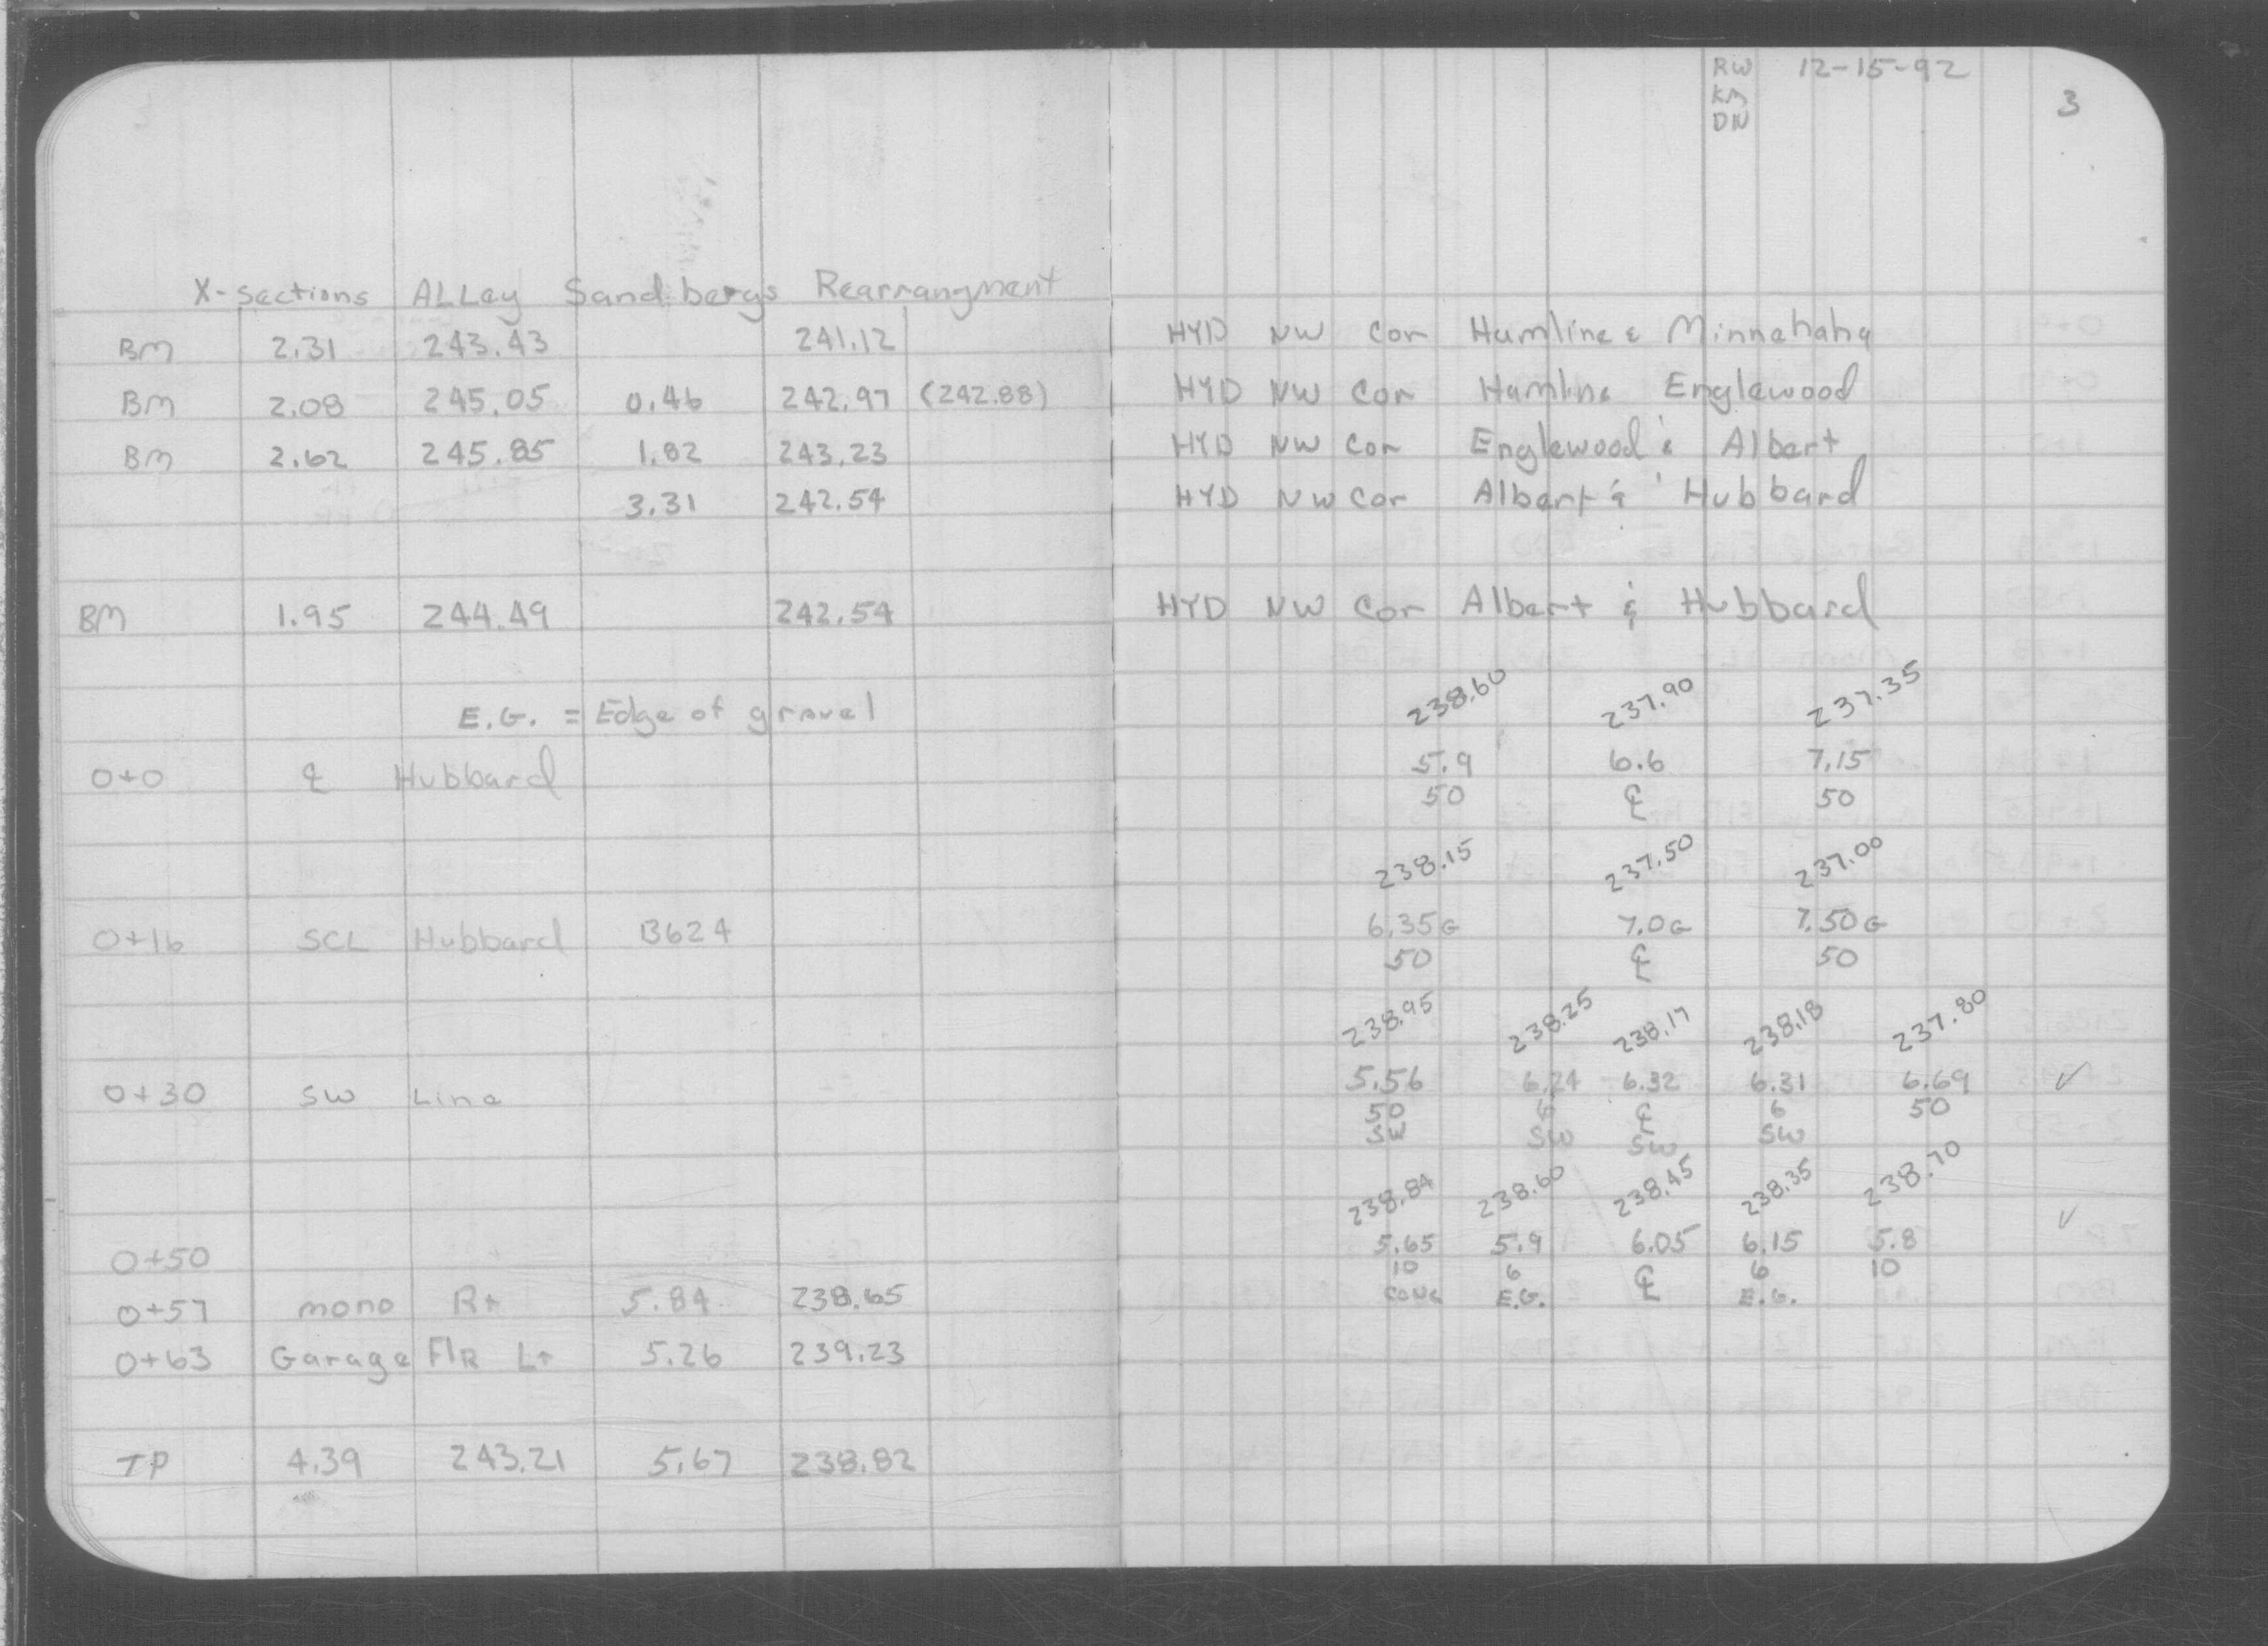 RW 12-15-92
KM 3
DN
X-sections ALLey Sandbergs Rearrangment
BM 2.31 243.43 241.12 HYD NW Cor Hamline & Minnehaha
BM 2.08 245.05 0.46 242.97 (242.88) HYD NW Cor Hamline Englewood
BM 2.62 245.85 1.82 243.23 HYD NW Cor Englewood & Albert
3.31 242.54 HYD NW Cor Albert & Hubbard
BM 1.95 244.49 242.54 HYD NW Cor Albert & Hubbard
E.G. = Edge of gravel 238.60 237.90 237.35
0+0 ℄ Hubbard 5.9 6.6 7.15
50 ℄ 50
238.15 237.50 237.00
0+16 SCL Hubbard B624 6.35G 7.0G 7.50G
50 ℄ 50
238.95 238.25 238.17 238.18 237.80
0+30 SW Line 5.56 6.24 6.32 6.31 6.69 ✓
50 6 ℄ 6 50
SW SW SW SW
238.84 238.60 238.45 238.35 238.70
0+50 5.65 5.9 6.05 6.15 5.8 ✓
10 6 ℄ 6 10
conc E.G. E.G.
0+57 mono Rt 5.84 238.65
0+63 Garage FlR Lt 5.26 239.23
TP 4.39 243.21 5.67 238.82